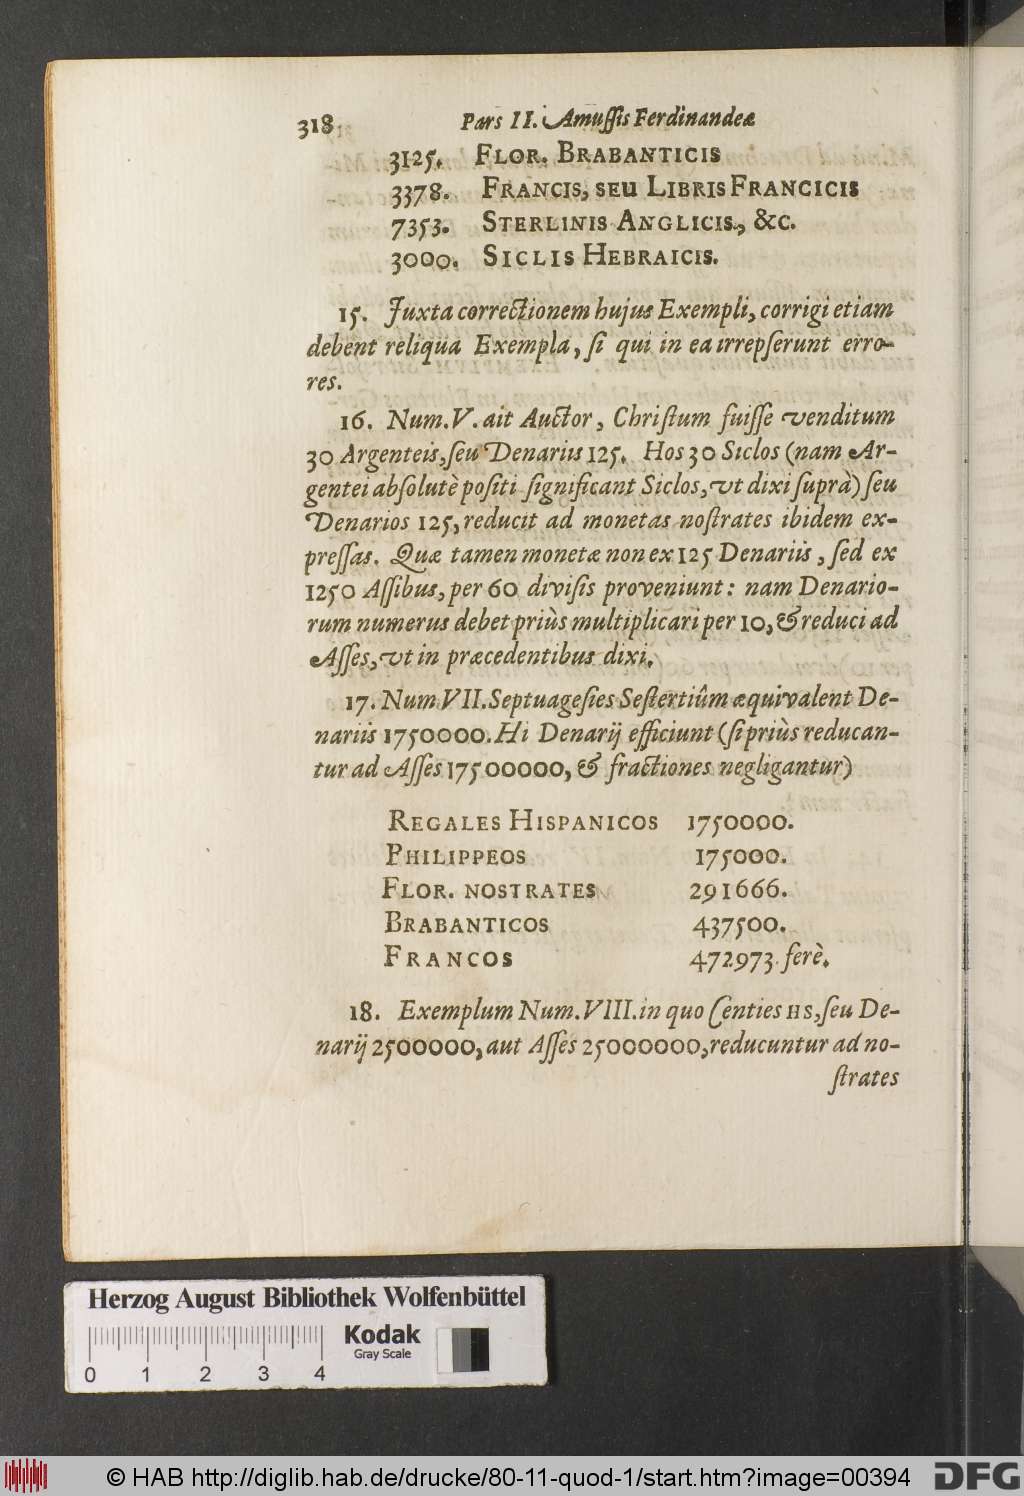 318 Pars II. Amuſſis Ferdinandeæ
3125. FLOR. BRABANTICIS
3378. FRANCIS, SEU LIBRIS FRANCICIS
7353. STERLINIS ANGLICIS, &C.
3000. SICLIS HEBRAICIS.
15. Juxta correctionem hujus Exempli, corrigi etiam
debent reliqua Exempla, ſi qui in ea irrepſerunt erro-
res.
16. Num. V. ait Auctor, Chriſtum fuiſſe venditum
30 Argenteis, ſeu Denariis 125. Hos 30 Siclos (nam Ar-
gentei abſolutè poſiti ſignificant Siclos, vt dixi ſuprà) ſeu
Denarios 125, reducit ad monetas noſtrates ibidem ex-
preſſas. Quæ tamen monetæ non ex 125 Denariis, ſed ex
1250 Aſſibus, per 60 diviſis proveniunt: nam Denario-
rum numerus debet priùs multiplicari per 10, & reduci ad
Aſſes, vt in præcedentibus dixi.
17. Num VII. Septuageſies Seſtertiûm æquivalent De-
nariis 1750000. Hi Denarij efficiunt (ſi priùs reducan-
tur ad Aſſes 17500000, & fractiones negligantur)
REGALES HISPANICOS 1750000.
PHILIPPEOS 175000.
FLOR. NOSTRATES 291666.
BRABANTICOS 437500.
FRANCOS 472973 ferè.
18. Exemplum Num. VIII. in quo Centies HS, ſeu De-
narij 2500000, aut Aſſes 25000000, reducuntur ad no-
ſtrates
Herzog August Bibliothek Wolfenbüttel
Kodak
Gray Scale
0 1 2 3 4
© HAB http://diglib.hab.de/drucke/80-11-quod-1/start.htm?image=00394
DFG